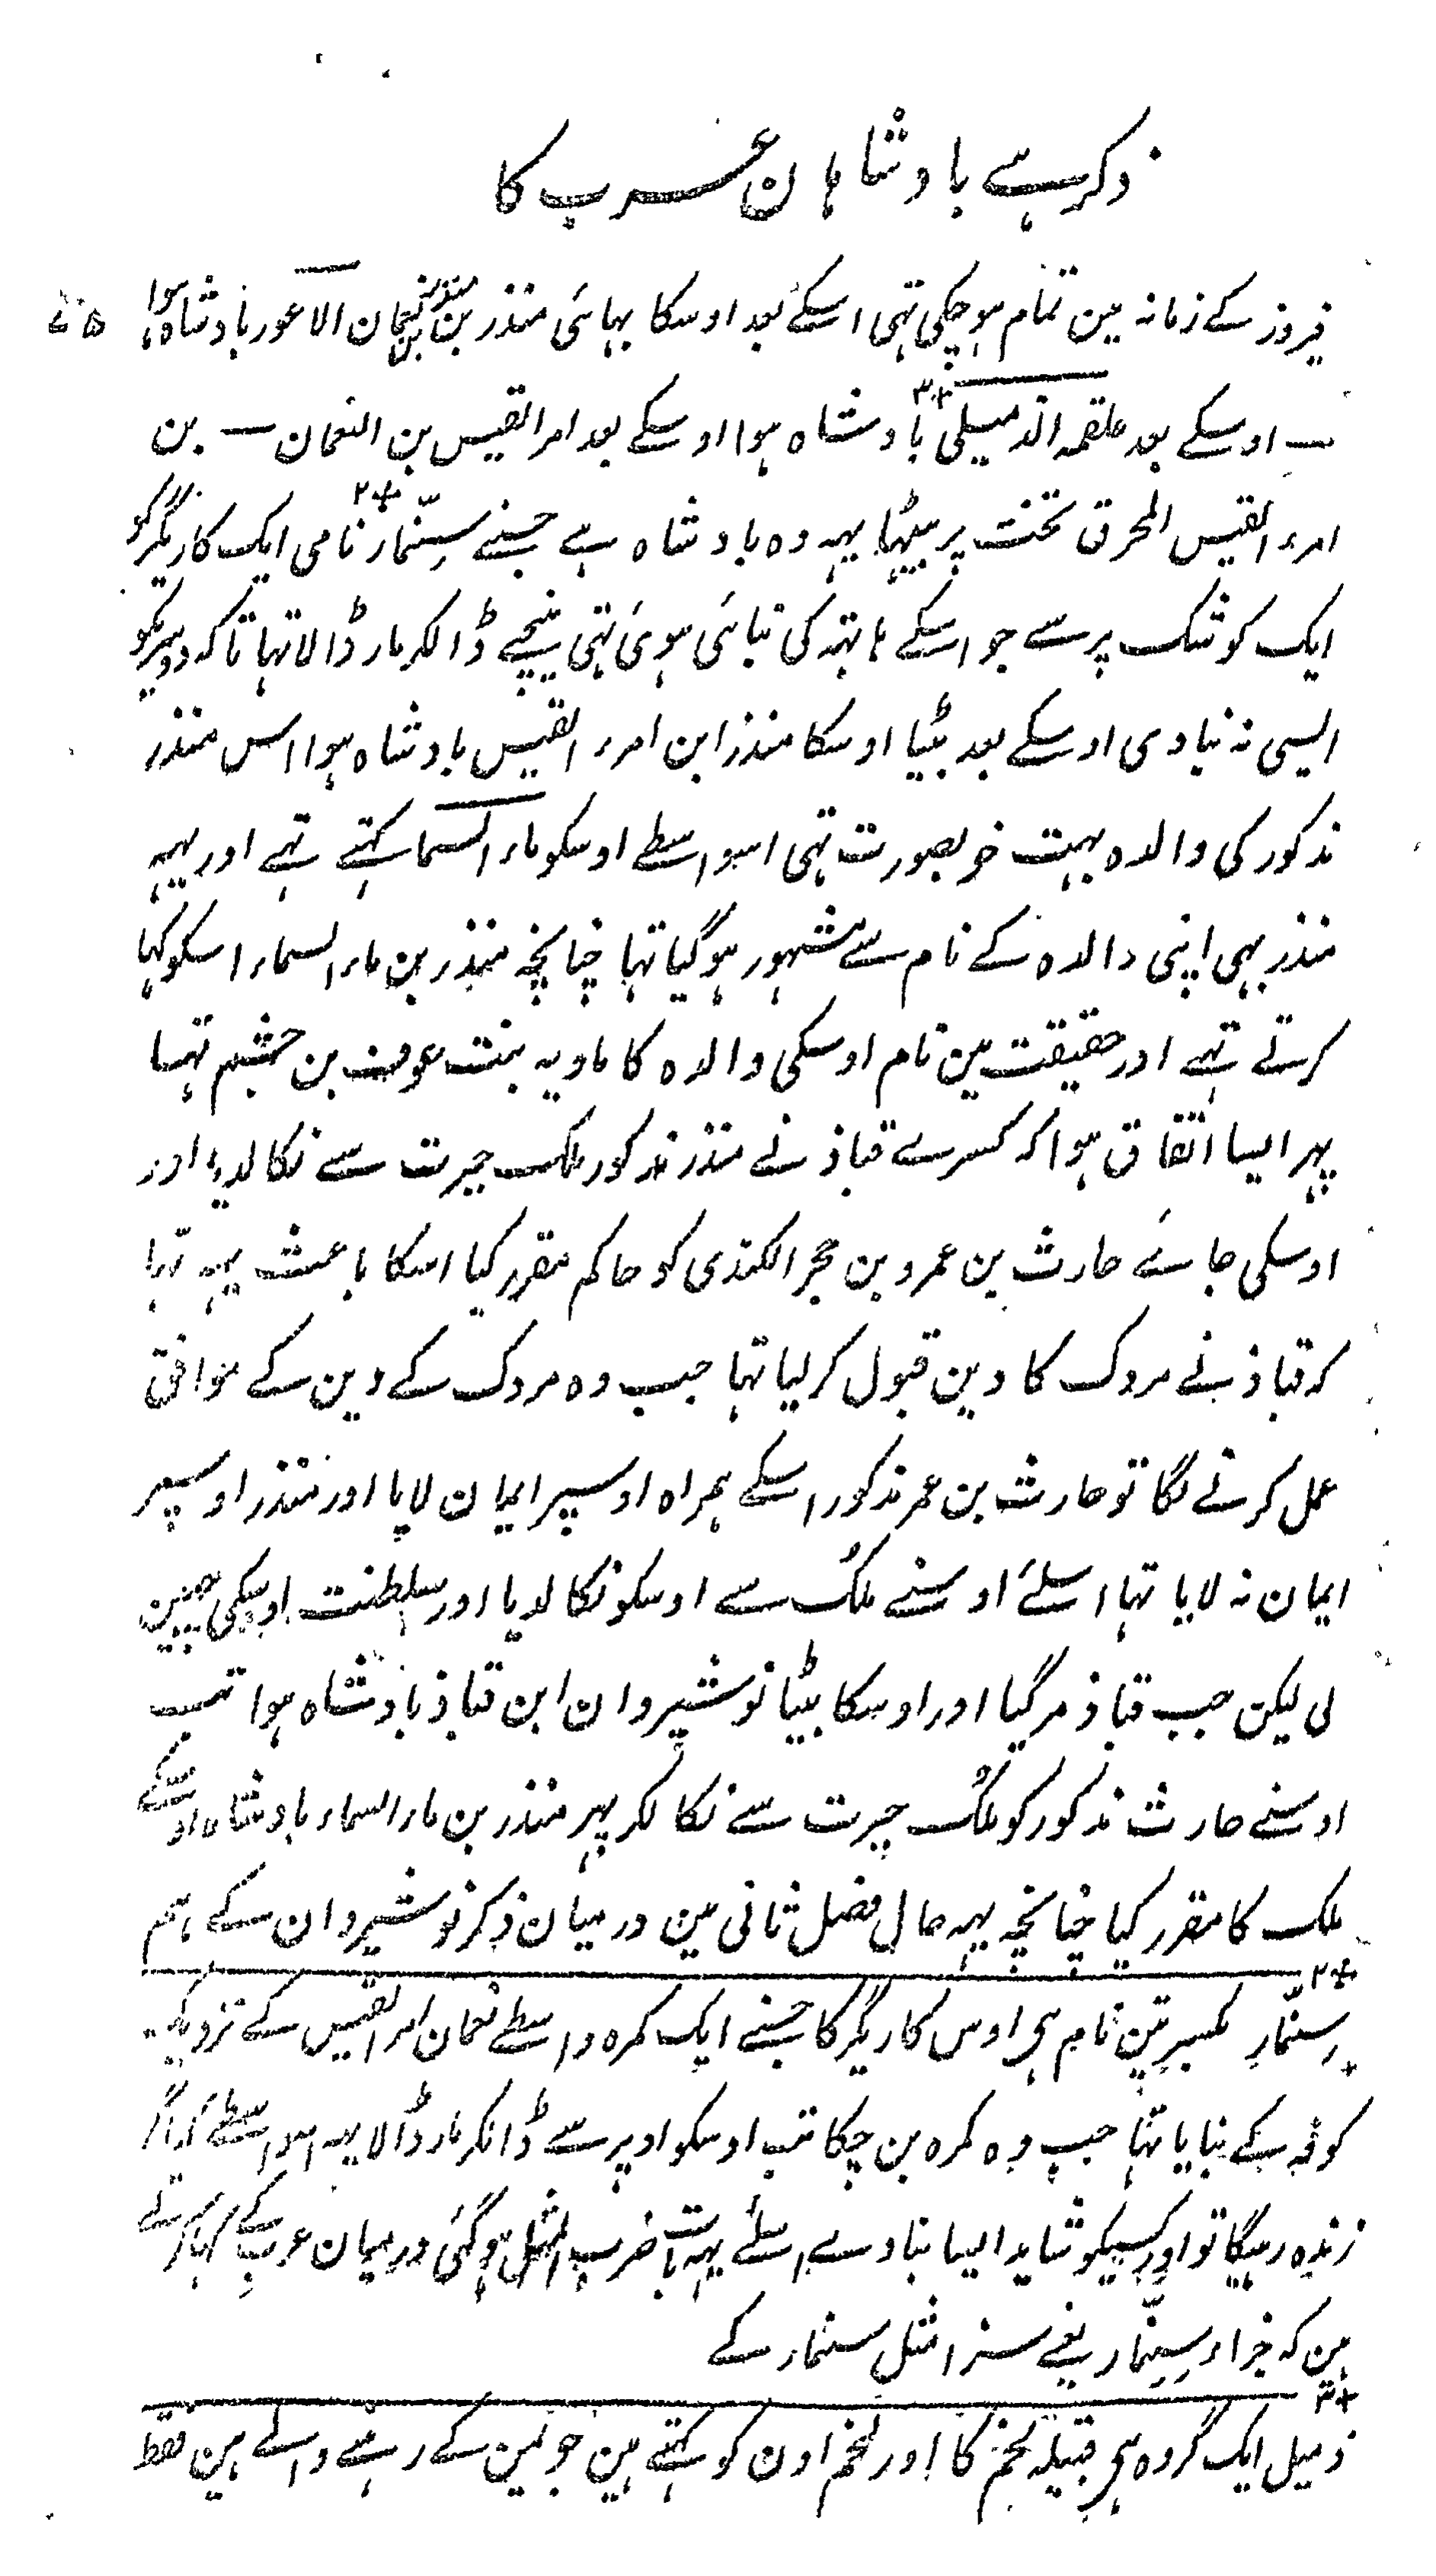 ذکر ہے بادشاہان عرب کا
فیروز کے زمانہ مین تمام ہوچکی تہی اسکے بعد اوسکا بہائی منذر بن منذر بن نعمان الاعور بادشاہ ہوا
اوسکے بعد علقمہ الذمیلی بادشاہ ہوا اوسکے بعد امرالقیس بن النعمان بن
امرء القیس المحرق تخت پر بیٹہا یہہ وہ بادشاہ ہے جسنے سِنّمار نامی ایک کاریگر کو
ایک کوشک پر سے جو اسکے ہاتہہ کی بنائی ہوئی تہی نیچے ڈالکر مار ڈالا تہا تاکہ دوسریکو
ایسی نہ بنادی اوسکے بعد بیٹیا اوسکا منذر ابن امرء القیس بادشاہ ہوا اس منذر
مذکور کی والدہ بہت خوبصورت تہی اسواسطے اوسکو ماء السما کہتے تہے اور یہہ
منذر بہی اپنی والدہ کے نام سے مشہور ہوگیا تہا چنانچہ منذر بن ماء السماء اسکو کہا
کرتے تہے اور حقیقت مین نام اوسکی والدہ کا ماویہ بنت عوف بن جشم تہا
پہر ایسا اتفاق ہوا کہ کسرے قباذ نے منذر مذکور ملک حیرت سے نکالدیا اور
اوسکی جائے حارث بن عمرو بن حجر الکندی کو حاکم مقرر کیا اسکا باعث یہہ تہا
کہ قباذ نے مردک کا دین قبول کرلیا تہا جب وہ مردک کے دین کے موافق
عمل کرنے لگا تو حارث بن عمر مذکور اسکے ہمراہ اوسپر ایمان لایا اور منذر اوسپر
ایمان نہ لایا تہا اسلئے اوسنے ملک سے اوسکو نکالدیا اور سلطنت اوسکی چہین
لی لیکن جب قباذ مرگیا اور اوسکا بیٹیا نوشیروان ابن قباذ بادشاہ ہوا تب
اوسنے حارث مذکور کو ملک حیرت سے نکالکر پہر منذر بن ماء السماء بادشاہ اوسکے
ملک کا مقرر کیا چنانچہ یہہ حال فصل ثانی مین درمیان ذکر نوشیروان کے ہم
۲ سِنّمار بکسرتین نام ہی اوس کاریگر کا جسنے ایک کمرہ واسطے نعمان امرالقیس کے نزدیک
کوفہ کے بنایا تہا جب وہ کمرہ بن چکا تب اوسکو اوپر سے ڈالکر مار ڈالا یہہ اسواسطے کہ اگر
زندہ رہیگا تو اور کسیکو شاید ایسا بنادے اسلئے یہہ بات ضرب المثل ہوگئی درمیان عرب کے کہا کرتے
ہین کہ جزاء سِنّمار یعنے سزا مثل سنمار کے
۳ ذمیل ایک گروہ ہی قبیلہ لخم کا اور لخم اون کو کہتے ہین جو یمن کے رہنے والے ہین فقط